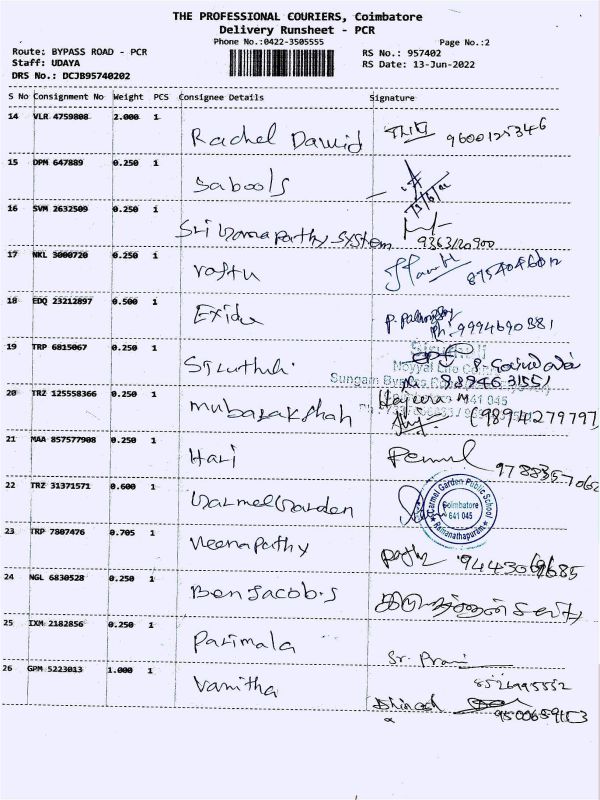 THE PROFESSIONAL COURIERS, Coimbatore
Delivery Runsheet - PCR
Phone No.:0422-3505555
Page No.:2
Route: BYPASS ROAD - PCR
RS No.: 957402
Staff: UDAYA
RS Date: 13-Jun-2022
DRS No.: DCJB95740202
S No Consignment No Weight PCS Consignee Details Signature
14 VLR 4759808 2.000 1 Rachel David 9600125346
15 DPM 647889 0.250 1 Sabools
16 SVM 2632509 0.250 1 Sri Ganapathy System 9363120900
17 NKL 3000720 0.250 1
18 EDQ 23212897 0.500 1 Exide
Ph: 9994690381
19 TRP 6815067 0.250 1 Siruthuli
Siruthuli
Noyyal Life Centre
Sungam Bypass
641 045
20 TRZ 125558366 0.250 1 Mubarakshah (9894279797)
21 MAA 857577908 0.250 1 Hari
22 TRZ 31371571 0.600 1 Carmel Garden
Carmel Garden Public School
Coimbatore
641 045
Ramanathapuram
23 TRP 7807476 0.705 1 Veenapathy
24 NGL 6830528 0.250 1 Ben Jacob.S
25 IXM 2182856 0.250 1 Parimala
26 GPM 5223013 1.000 1 Vanitha